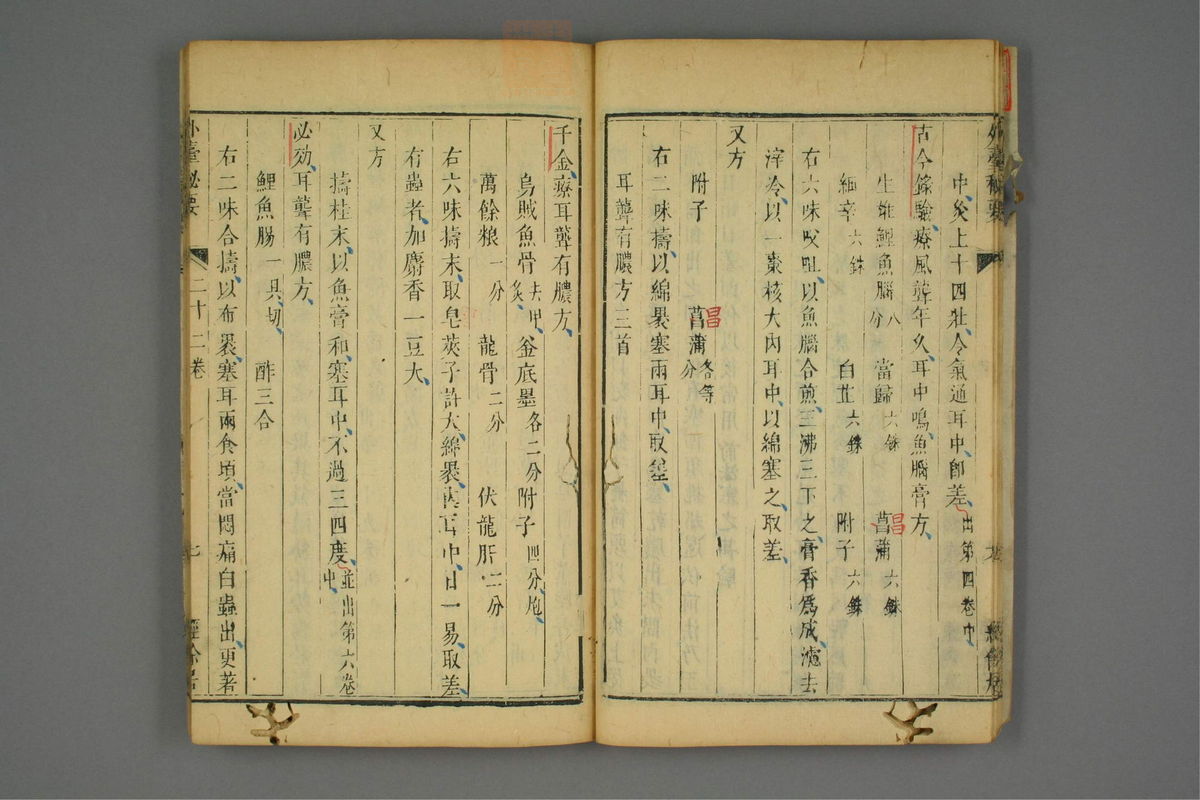 中灸上十四壯令氣通耳中卽差出第四卷中
古今錄驗療風聾年久耳中鳴魚腦膏方
生雄鯉魚腦八分 當歸六銖 菖蒲六銖
細辛六銖 白芷六銖 附子六銖
右六味㕮咀以魚腦合煎三沸三下之膏香爲成濾去
滓冷以一棗核大內耳中以綿塞之取差
又方
附子 菖蒲各等分
右二味擣以綿裹塞兩耳中取差
耳聾有膿方三首
千金療耳聾有膿方
烏賊魚骨 釜底墨各二分 附子四分炮
萬餘粮一分 龍骨二分 伏龍肝二分
右六味擣末取皂莢子許大綿裹內耳中日一易取差
有蟲者加麝香一豆大
又方
擣桂末以魚膏和塞耳中不過三四度並出第六卷中
必効耳聾有膿方
鯉魚腸一具切 酢三合
右二味合擣以布裹塞耳兩食頃當悶痛白蟲出更著
外臺秘要 二十二卷 七 經餘居